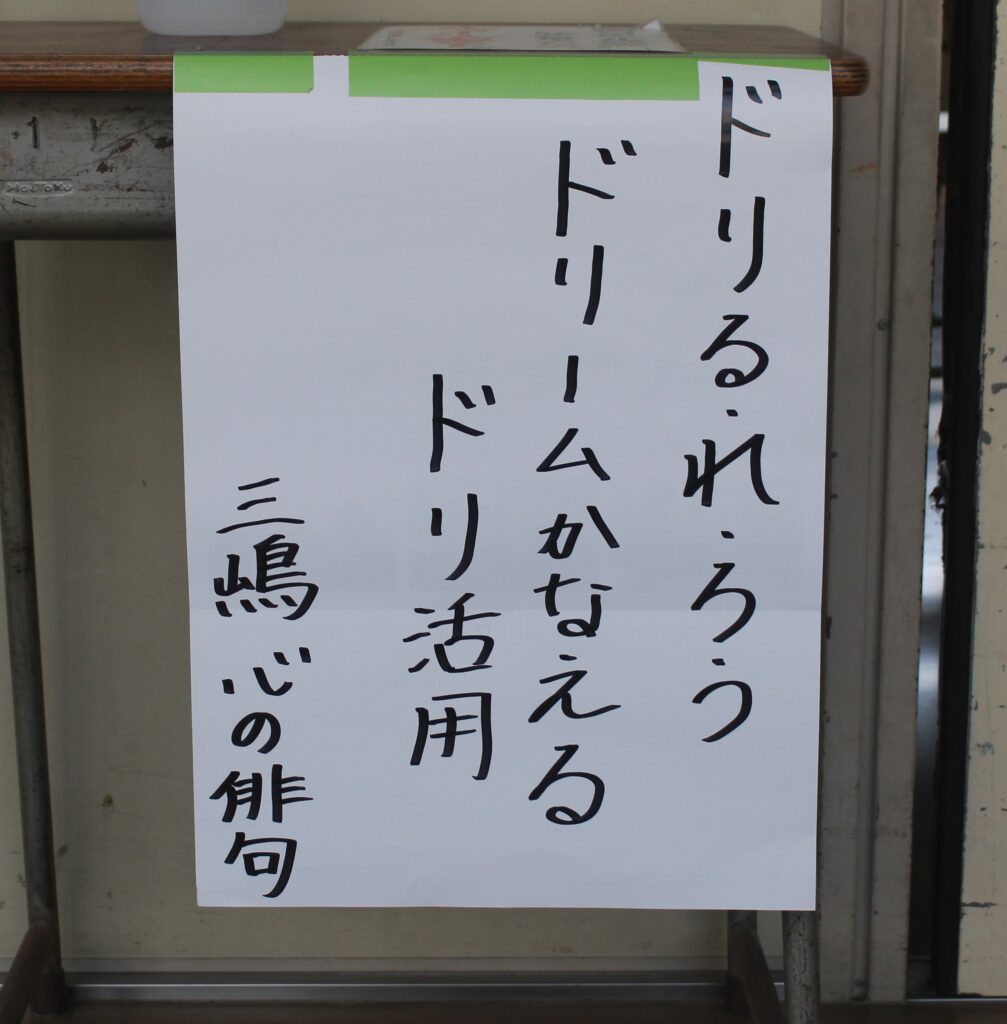 ドリる・れ・ろう
ドリームかなえる
ドリ活用
三嶋 心の俳句
1
HOUTOKU